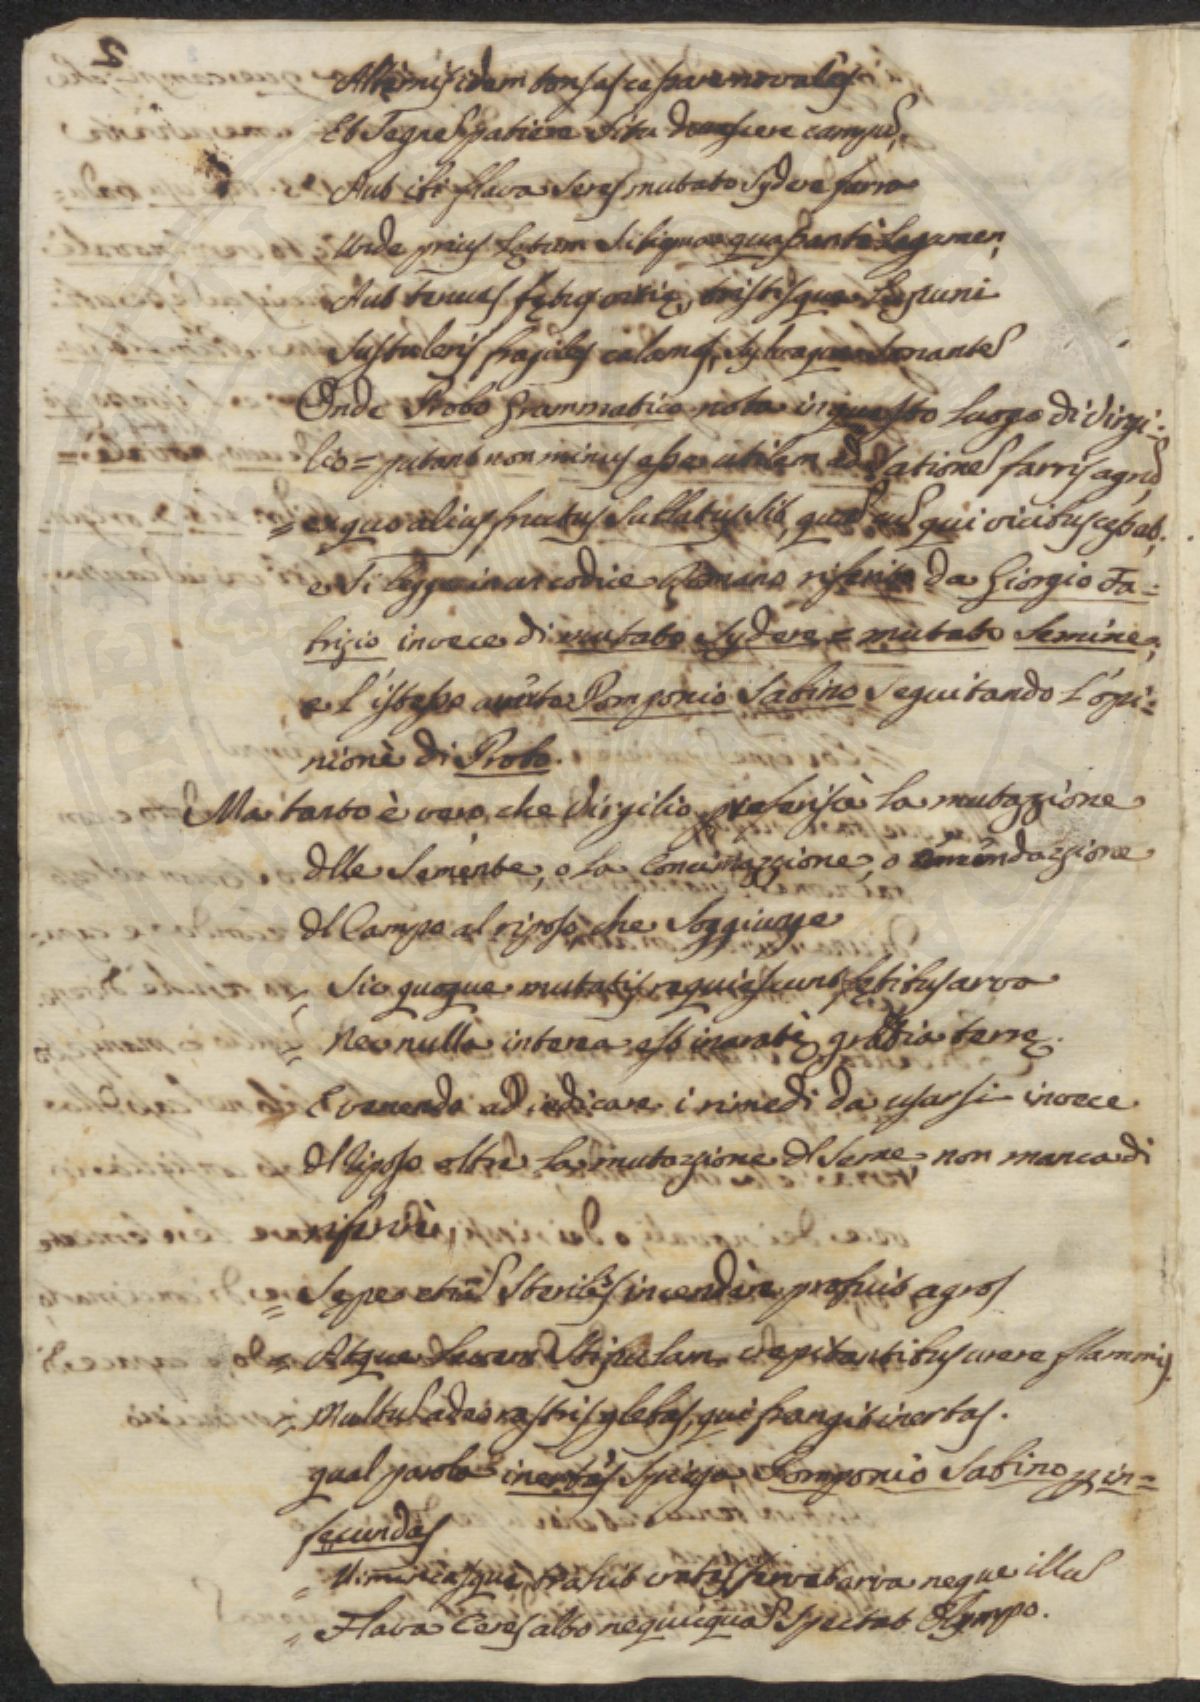 2
Alternis idem tonsas cessare novales
Et Segnes patiere situ durescere campus,
Aut ibi flava seres mutato sydere farra
Unde prius lętum siliqua quassante legumen
Aut tenues fętus vitię, tristisque Lupini
Sustuleris fragiles calamos, sylvaque sonantes
Onde Probo Grammatico nota in questo luogo di Virgi=
lio = putant non minus esse utilem ad sationes farris agrũ,
= ex quo alius fructus sublatus sit, quã eũ qui vicibus cessab.
e si legge in un codice Romano riferito da Giorgio Fa=
trizio in vece di mutato sydere = mutato semine =,
e l'istesso Pomponio Sabino seguitando l'opi=
nione di Probo.
Ma tanto è vero, che Virgilio preferisca la mutazzione
dlle semente, o la Concimazzione, o
dl Campo al riposo, che soggiunge
= Sic quoque mutatis requiescunt fętibus arva
= Nec nulla interea est inaratę gratia terrę.
E venendo ad indicare i rimedi da usarsi invece
dl riposo oltre la mutazzione dl seme non manca di
riferire
= Sępe etiã steriles incendere profuit agros
= Atque levem stipulam crepitantibus urere flammis.
= Multũ adeo rastris glebas, qui frangit inertas.
qual parola inertas spiega Pomponio Sabino in=
fecundas
= Vimineasque trahit crates juvat arva neque illũ
= Flava Ceres alto nequicquã spectat Olympo.